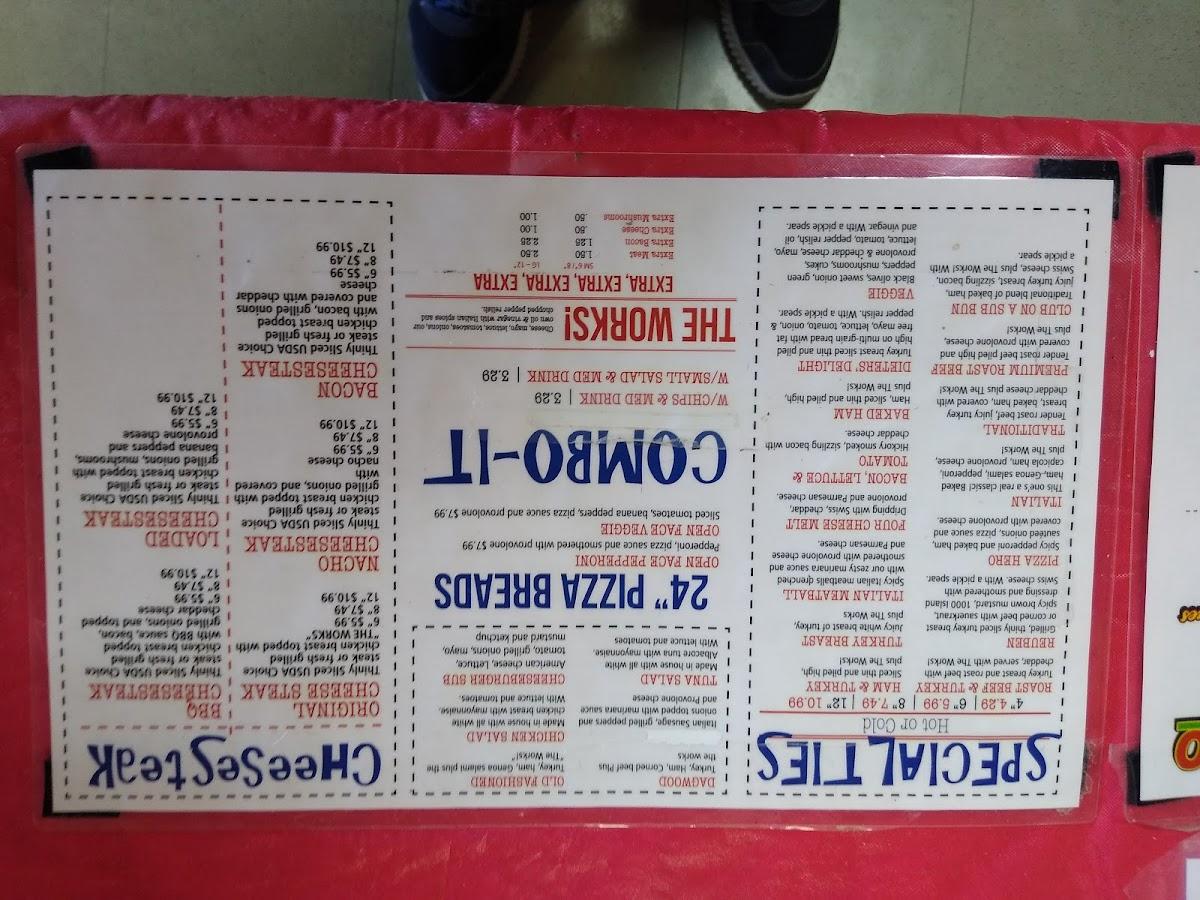 SPECIALTIES
Hot or Cold
4" 4.29 | 6" 5.99 | 8" 7.49 | 12" 10.99
ROAST BEEF & TURKEY
Turkey breast and roast beef with
cheddar, served with The Works!
REUBEN
Grilled, thinly sliced turkey breast
or corned beef with sauerkraut,
spicy brown mustard, 1000 Island
dressing and smothered with
Swiss cheese. With a pickle spear.
PIZZA HERO
Spicy pepperoni and baked ham,
sautéed onions, pizza sauce and
covered with provolone cheese.
ITALIAN
This one's a real classic! Baked
ham, Genoa salami, pepperoni,
capicola ham, provolone cheese,
plus The Works!
TRADITIONAL
Tender roast beef, juicy turkey
breast, baked ham, covered with
cheddar cheese plus The Works!
PREMIUM ROAST BEEF
Tender roast beef piled high and
covered with provolone cheese,
plus The Works!
CLUB ON A SUB BUN
Traditional blend of baked ham,
juicy turkey breast, sizzling bacon,
Swiss cheese, plus The Works! With
a pickle spear.
HAM & TURKEY
Thin sliced and piled high,
plus The Works!
TURKEY BREAST
Juicy white breast of turkey,
plus The Works
ITALIAN MEATBALL
Spicy Italian meatballs drenched
with our zesty marinara sauce
smothered with provolone cheese
and Parmesan cheese.
FOUR CHEESE MELT
Dripping with Swiss, cheddar,
provolone and Parmesan cheese.
BACON, LETTUCE &
TOMATO
Hickory smoked, sizzling bacon with
cheddar cheese.
BAKED HAM
Ham, sliced thin and piled high,
plus The Works!
DIETERS' DELIGHT
Turkey breast sliced thin and piled
high on multi-grain bread with fat
free mayo, lettuce, tomato, onion, &
pepper relish. With a pickle spear.
VEGGIE
Black olives, sweet onion, green
peppers, mushrooms, cukes,
provolone & cheddar cheese, mayo,
lettuce, tomato, pepper relish, oil
and vinegar. With a pickle spear.
DAGWOOD
Turkey, Ham, Corned beef Plus
the works
Italian Sausage, grilled peppers and
onions topped with marinara sauce
and Provolone cheese
TUNA SALAD
Made in house with all white
Albacore tuna with mayonnaise.
With lettuce and tomatoes
OLD FASHIONED
Turkey, ham, Genoa salami plus the
"The Works"
CHICKEN SALAD
Made in house with all white
chicken breast with mayonnaise.
With lettuce and tomatoes.
CHEESEBURGER SUB
American cheese, Lettuce,
tomato, grilled onions, mayo,
mustard and ketchup
24" PIZZA BREADS
OPEN FACE PEPPERONI
Pepperoni, pizza sauce and smothered with provolone $7.99
OPEN FACE VEGGIE
Sliced tomatoes, banana peppers, pizza sauce and provolone $7.99
COMBO-IT
W/CHIPS & MED DRINK | 3.29
W/SMALL SALAD & MED DRINK | 3.29
THE WORKS!
Cheese, mayo, lettuce, tomatoes, onions, our
own oil & vinegar with Italian spices and
chopped pepper relish.
EXTRA, EXTRA, EXTRA, EXTRA
SM 6"/8" LG - 12"
Extra Meat 1.50 2.50
Extra Bacon 1.25 2.25
Extra Cheese .50 1.00
Extra Mushrooms .50 1.00
CHEESESTEAK
ORIGINAL
CHEESE STEAK
Thinly Sliced USDA Choice
steak or fresh grilled
chicken breast topped with
"THE WORKS"
6" $5.99
8" $7.49
12" $10.99
NACHO
CHEESESTEAK
Thinly Sliced USDA Choice
steak or fresh grilled
chicken breast topped with
grilled onions, and covered
with
nacho cheese
6" $5.99
8" $7.49
12" $10.99
BACON
CHEESESTEAK
Thinly Sliced USDA Choice
steak or fresh grilled
chicken breast topped
with bacon, grilled onions
and covered with cheddar
cheese
6" $5.99
8" $7.49
12" $10.99
BBQ
CHEESESTEAK
Thinly Sliced USDA Choice
steak or fresh grilled
chicken breast topped
with BBQ sauce, bacon,
grilled onions, and topped
cheddar cheese
6" $5.99
8" $7.49
12" $10.99
LOADED
CHEESESTEAK
Thinly Sliced USDA Choice
steak or fresh grilled
chicken breast topped with
grilled onions, mushrooms,
banana peppers and
provolone cheese
6" $5.99
8" $7.49
12" $10.99